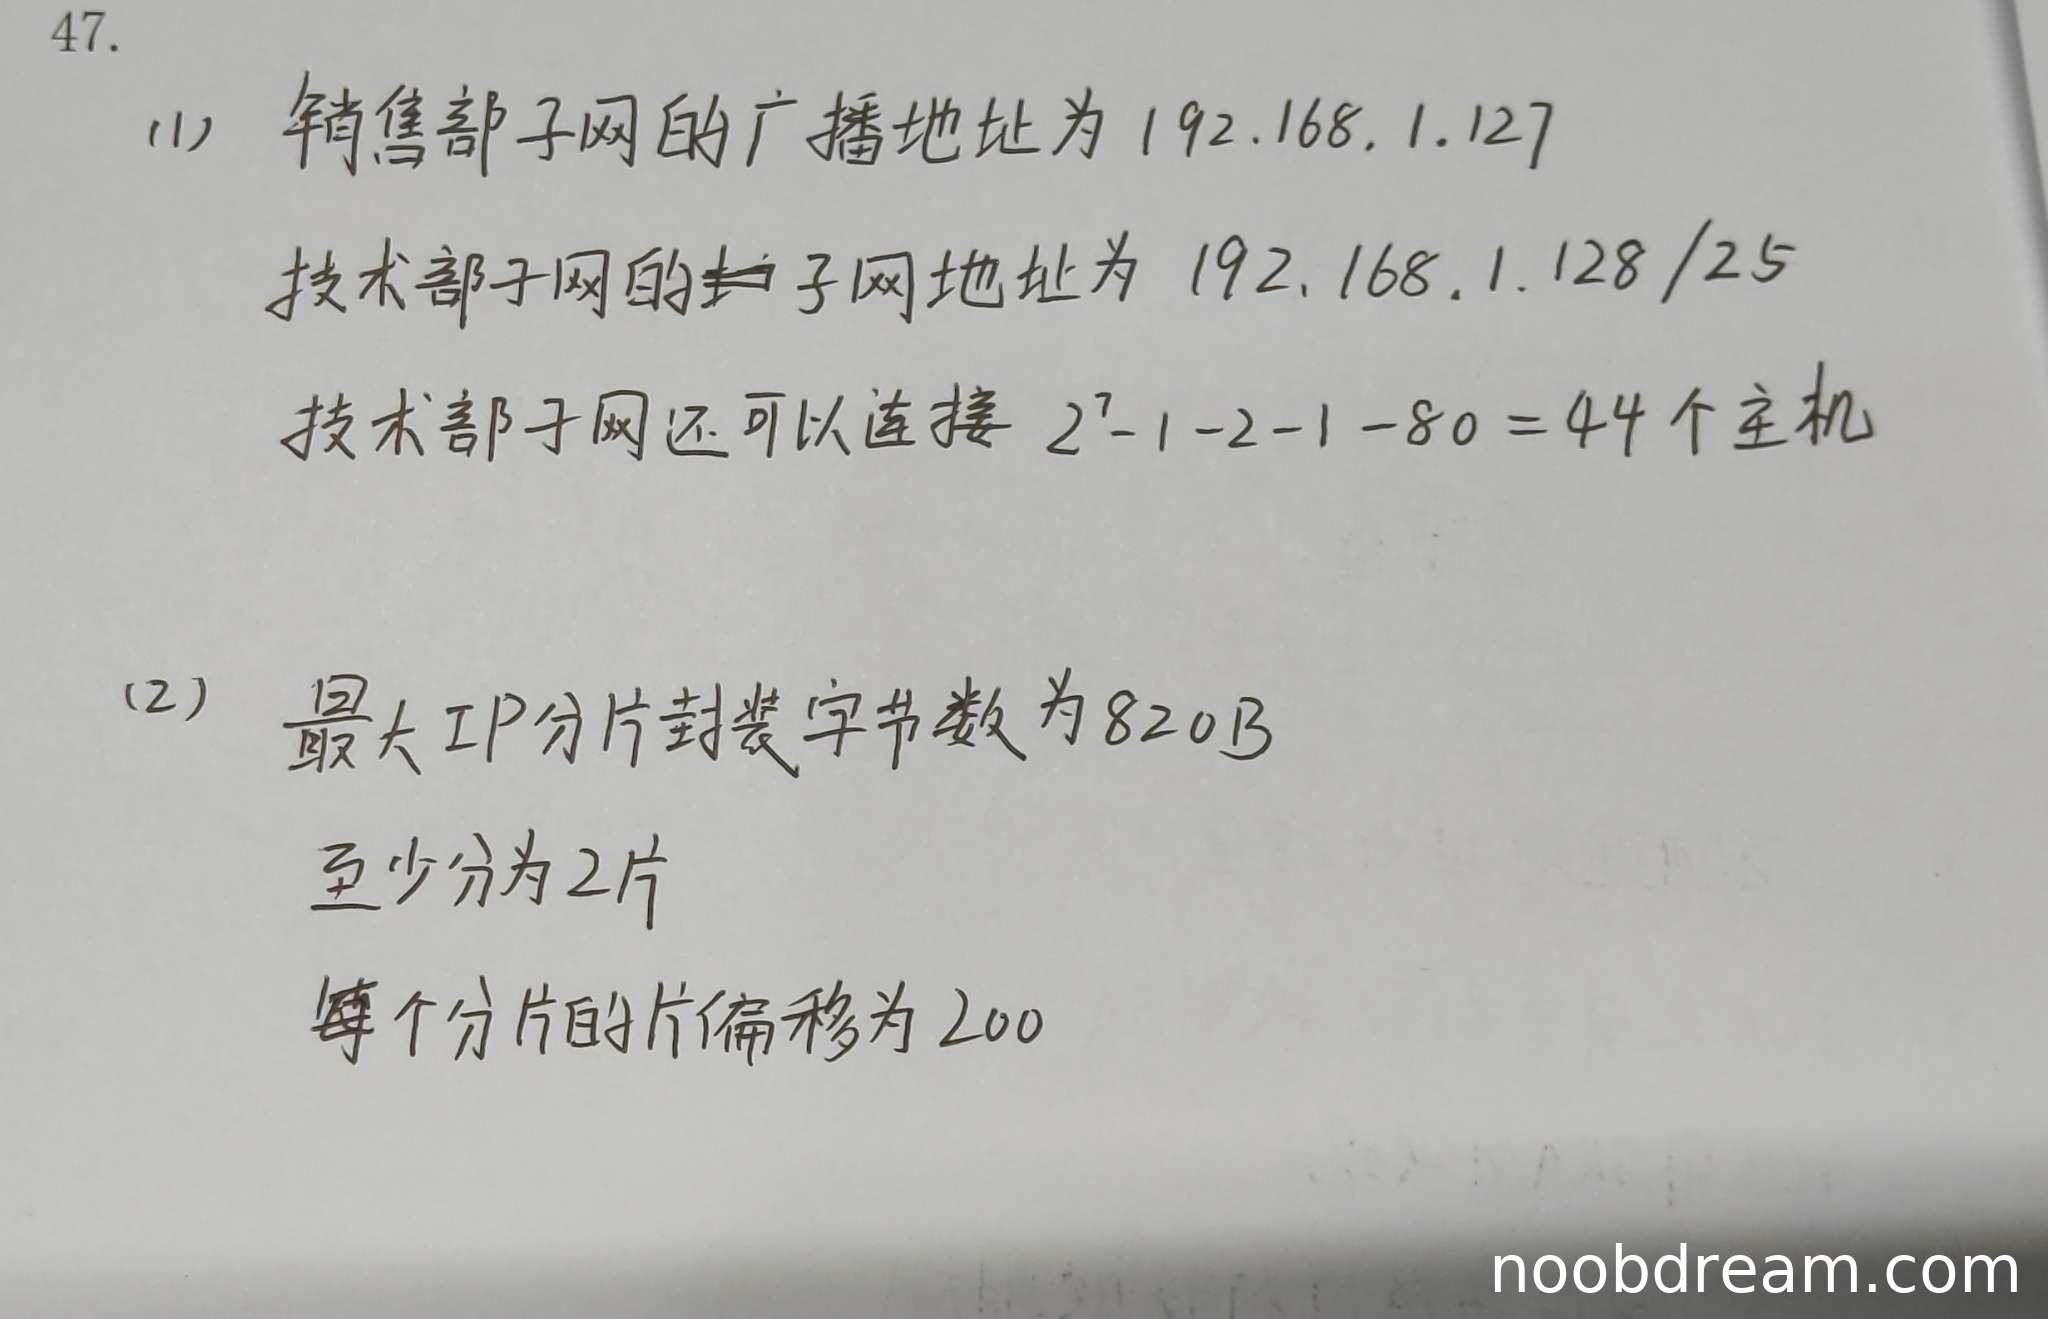 47.
(1) 销售部子网的广播地址为 192.168.1.127
技术部子网的子网地址为 192.168.1.128/25
技术部子网还可以连接 2⁷-1-2-1-80=44个主机
(2) 最大IP分片封装字节数为820B
至少分为2片
每个分片的片偏移为200
noobdream.com